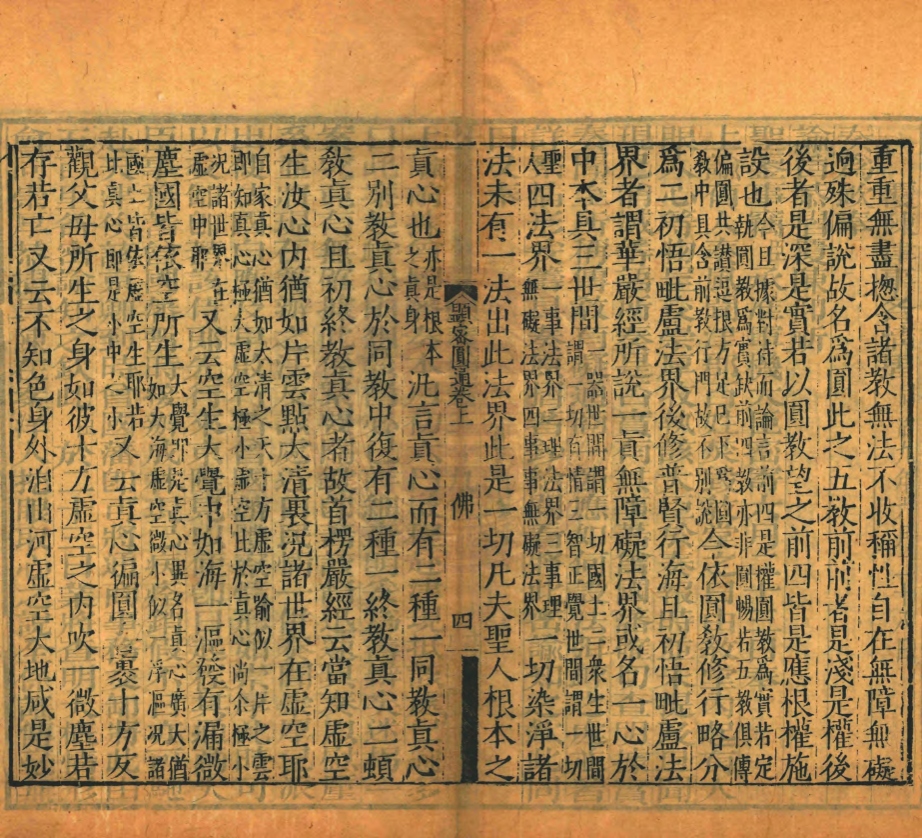 重重無盡緫含諸教無法不收稱性自在無障無礙
逈殊偏說故名爲圓此之五教前前者是淺是權後
後者是深是實若以圓教望之前四皆是應根權施
設也今且據對待而論言前四是權圓教爲實若定
執圓教爲實缺前四教亦非圓暢若五教俱傳
偏圓共讃逗根方足已下圓
教中具含前教行門故不別說今依圓教修行略分
爲二初悟毗盧法界後修普賢行海且初悟毗盧法
界者謂華嚴經所說一眞無障礙法界或名一心於
中本具三世間一器世間謂一切國土二衆生世間
謂一切有情三智正覺世間謂一切
聖人四法界一事法界二理法界三事理
無礙法界四事事無礙法界一切染淨諸
法未有一法出此法界此是一切凡夫聖人根本之
顯密圓通卷上 佛 四
眞心也亦是根本
之眞身汎言眞心而有二種一同教眞心
二別教眞心於同教中復有二種一終教眞心二頓
教眞心且初終教眞心者故首楞嚴經云當知虛空
生汝心內猶如片雲點太清裏況諸世界在虛空耶
自家眞心猶如太清之天十方虛空喻似一片之雲
即知眞心極大虛空極小虛空比於眞心尚余極小
况諸世界在
虛空中耶又云空生大覺中如海一漚發有漏微
塵國皆依空所生大覺即是眞心異名眞心廣大猶
如大海虛空微小似一浮漚况諸
國土皆依虛空生耶若
比眞心即是小中之小又云眞心徧圓裹十方反
觀父母所生之身如彼十方虛空之內吹一微塵若
存若亡又云不知色身外洎山河虛空大地咸是妙